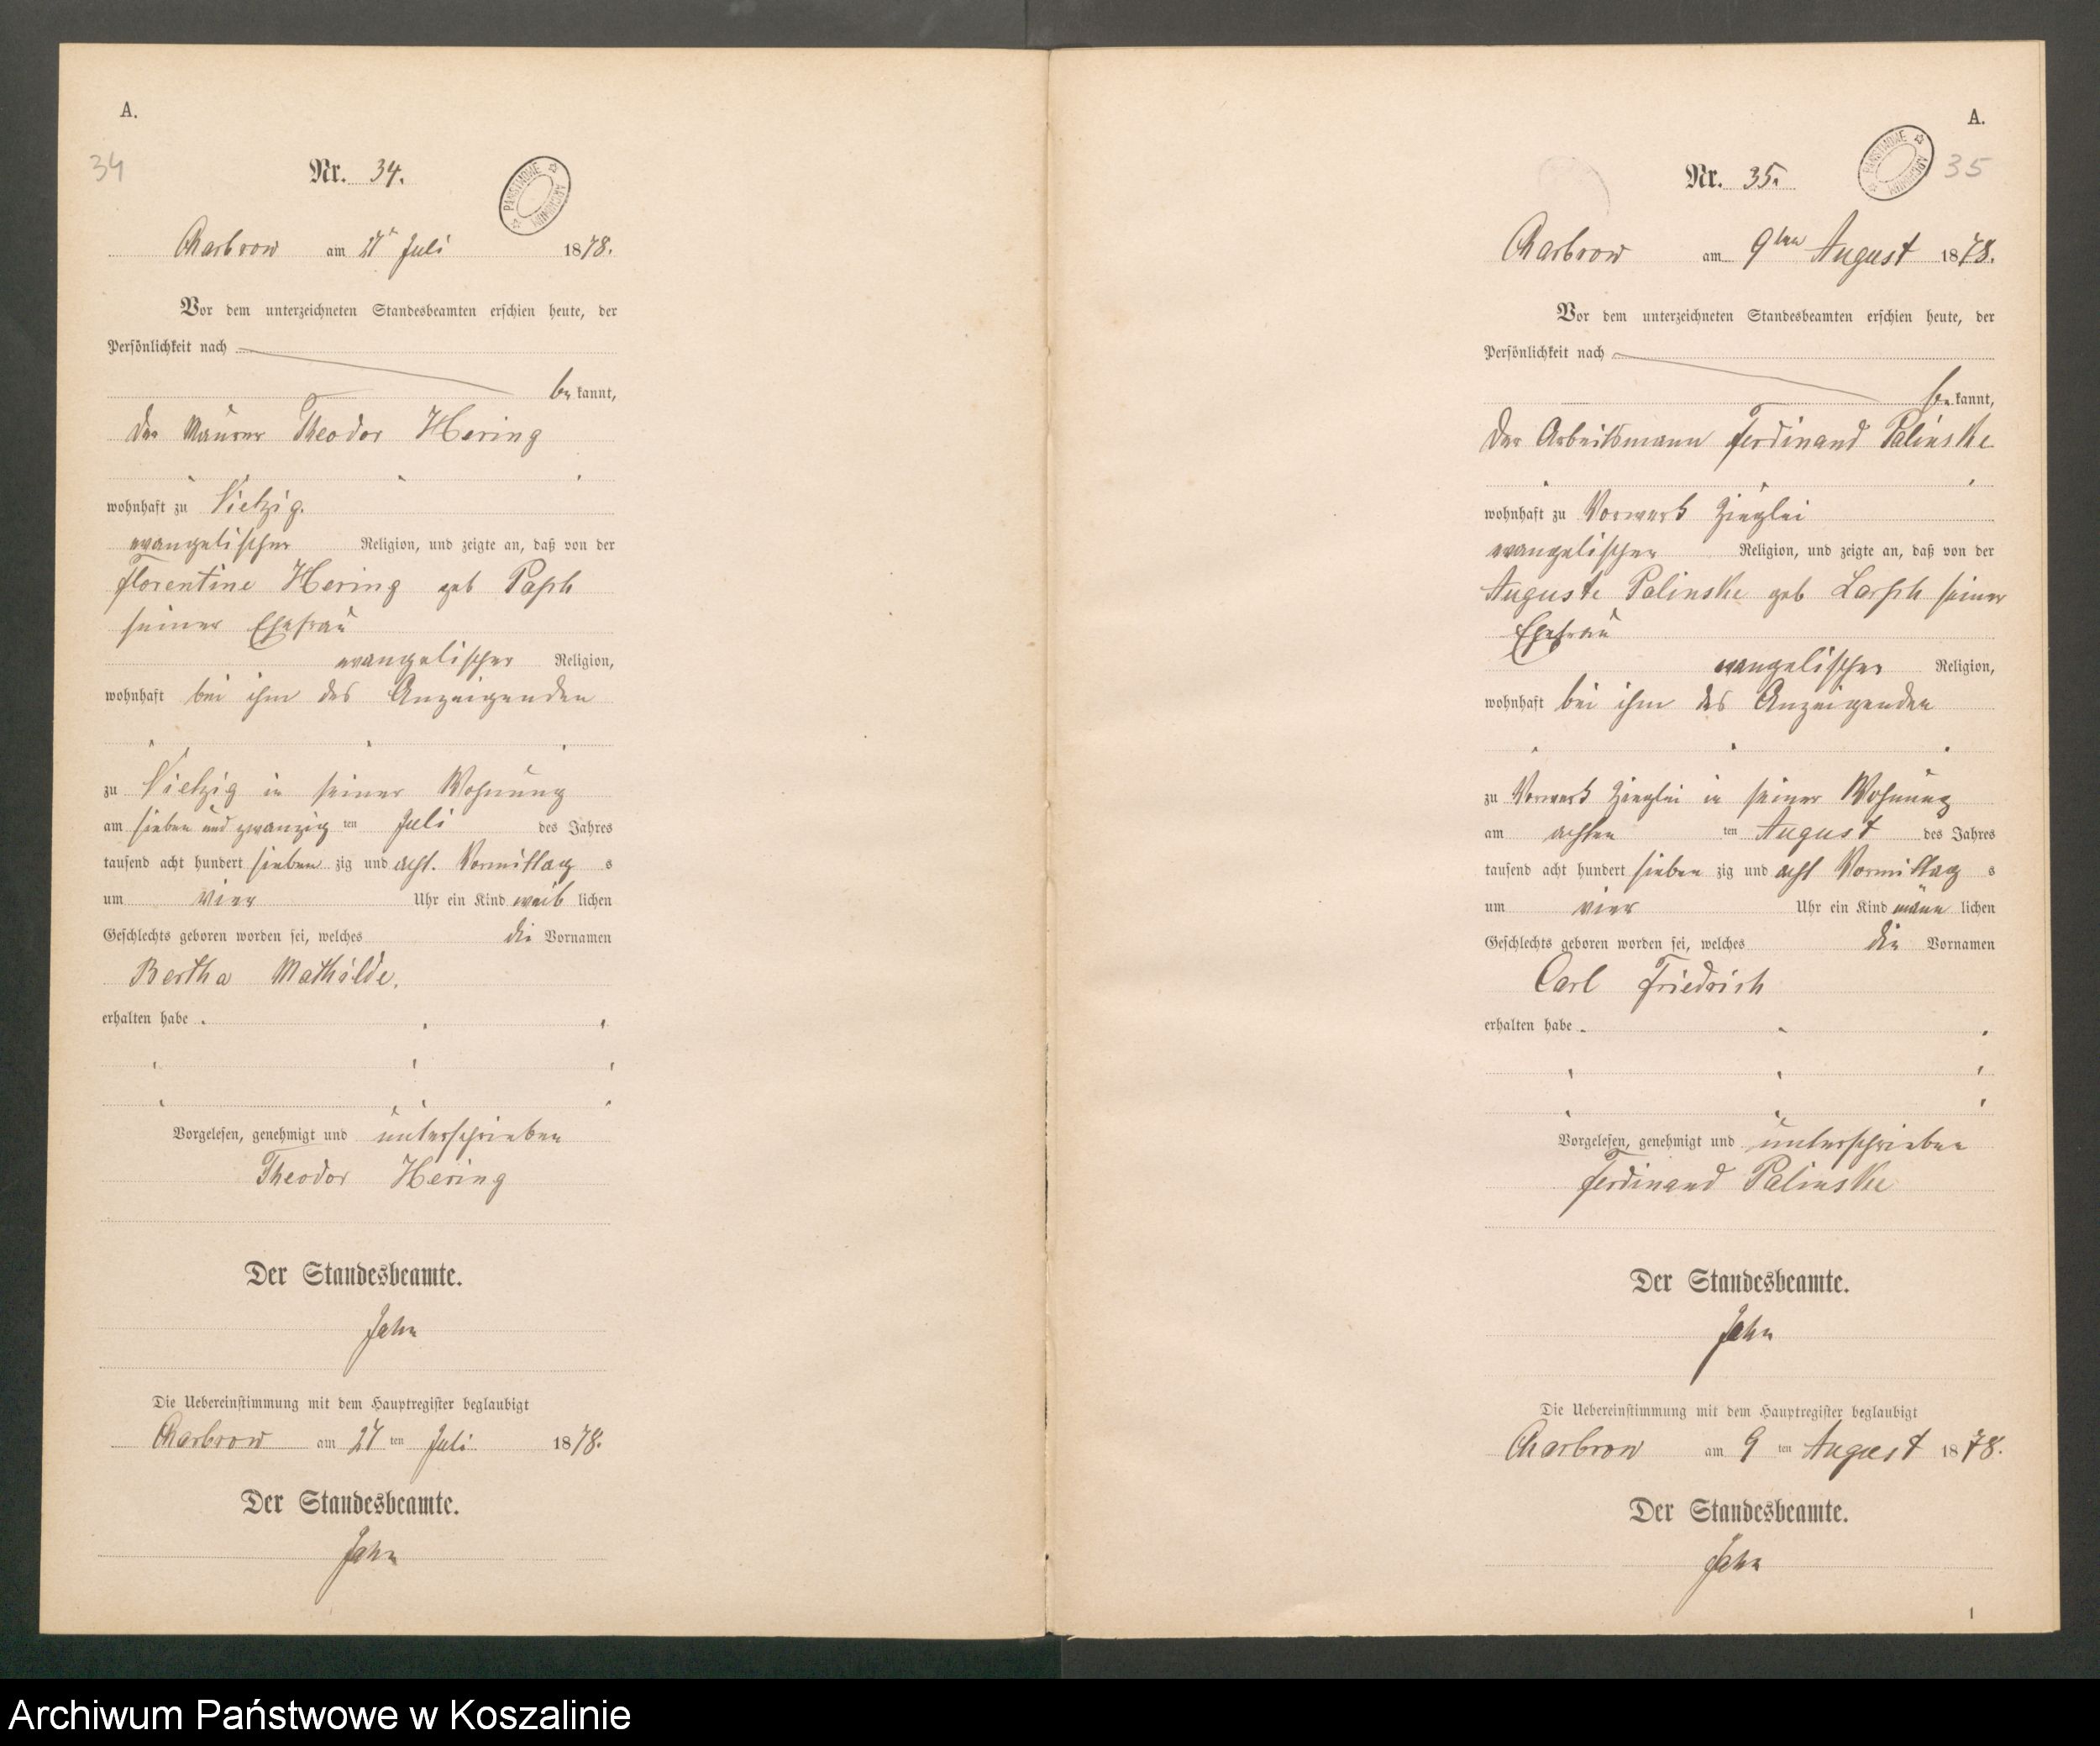 A.
34
Nr. 34.
PAŃSTWOWE ARCHIWUM
Charbrow am 27 Juli 1878.
Vor dem unterzeichneten Standesbeamten erschien heute, der
Persönlichkeit nach
be kannt,
der Maurer Theodor Hering
wohnhaft zu Vietzig.
evangelischer Religion, und zeigte an, daß von der
Florentine Hering geb
seiner Ehefrau
evangelischer Religion,
wohnhaft bei ihm des Anzeigenden
zu Vietzig in seiner Wohnung
am sieben und zwanzig ten Juli des Jahres
tausend acht hundert sieben zig und acht. Vormittag s
um vier Uhr ein Kind weib lichen
Geschlechts geboren worden sei, welches die Vornamen
Bertha Mathilde.
erhalten habe
Vorgelesen, genehmigt und unterschrieben
Theodor Hering
Der Standesbeamte.
Jahn
Die Uebereinstimmung mit dem Hauptregister beglaubigt
Charbrow am 27 ten Juli 1878.
Der Standesbeamte.
Jahn
A.
35
Nr. 35.
PAŃSTWOWE ARCHIWUM
Charbrow am 9ten August 1878.
Vor dem unterzeichneten Standesbeamten erschien heute, der
Persönlichkeit nach
be kannt,
der Arbeitsmann Ferdinand Palinske
wohnhaft zu Vorwerk
evangelischer Religion, und zeigte an, daß von der
Auguste Palinske geb seiner
Ehefrau
evangelischer Religion,
wohnhaft bei ihm des Anzeigenden
zu Vorwerk in seiner Wohnung
am achten ten August des Jahres
tausend acht hundert sieben zig und acht Vormittag s
um vier Uhr ein Kind männ lichen
Geschlechts geboren worden sei, welches die Vornamen
Carl Friedrich
erhalten habe
Vorgelesen, genehmigt und unterschrieben
Ferdinand Palinske
Der Standesbeamte.
Jahn
Die Uebereinstimmung mit dem Hauptregister beglaubigt
Charbrow am 9 ten August 1878.
Der Standesbeamte.
Jahn
1
Archiwum Państwowe w Koszalinie